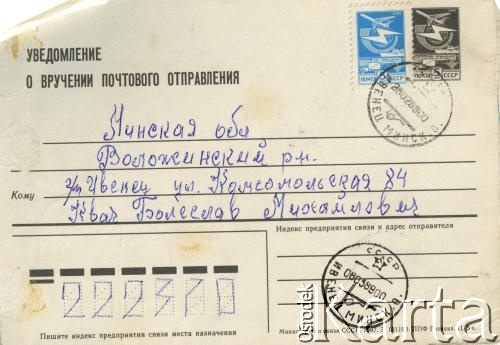 УВЕДОМЛЕНИЕ
О ВРУЧЕНИИ ПОЧТОВОГО ОТПРАВЛЕНИЯ
ПОЧТА СССР
ПОЧТА СССР
Минская обл
Воложинский рн.
Кому г/п Ивенец ул. Комсомольская 84
Квач Болеслав Михайлович
Индекс предприятия связи и адрес отправителя
СССР
ИВЕНЕЦ МИНСК. О.
Пишите индекс предприятия связи места назначения
Ośrodek
Karta